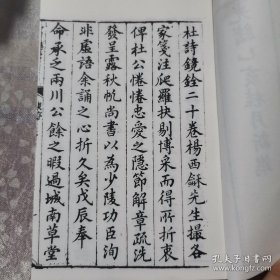 杜詩鏡銓二十卷楊西龢先生撮各
家箋注爬羅抉剔博采而得所折衷
俾杜公惓惓忠愛之隱節解章疏洗
發呈露秋帆尚書以為少陵功臣洵
非虛語余誦之心折久矣戊辰奉
命承乏兩川公餘之暇過城南草堂
孔夫子旧书网